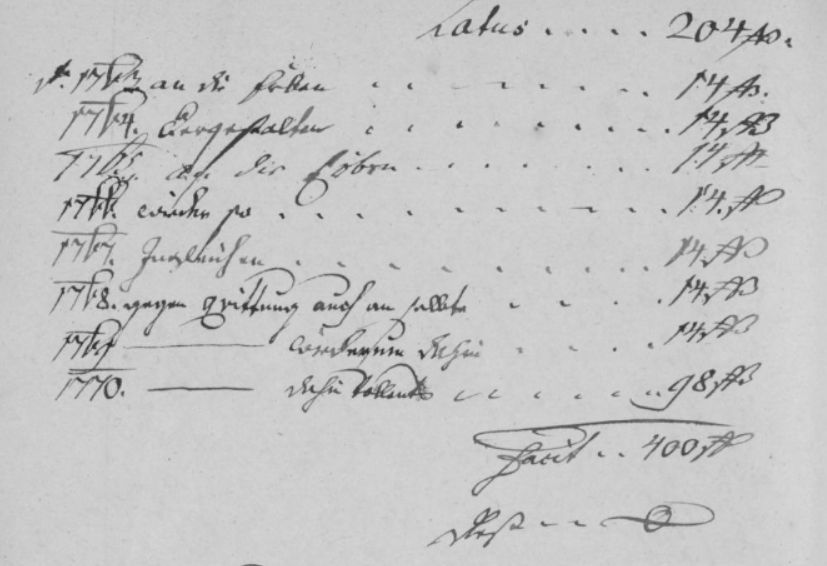 Latus .... 204 fl.
A. 1763 an die Erben . . . . . . . 14 fl.
1764. dergestalten . . . . . . . 14 fl
1765. an die Erben . . . . . . . 14 fl
1766. wieder so . . . . . . . . 14. fl
1767. Ingleichen . . . . . . . . 14 fl
1768. gegen Quittung auch an selbte . . . 14 fl
1769 —— wiederum dahin . . . . 14 fl
1770. —— dahin . . . . . . 98 fl
Facit .. 400 fl
Rest -- 0